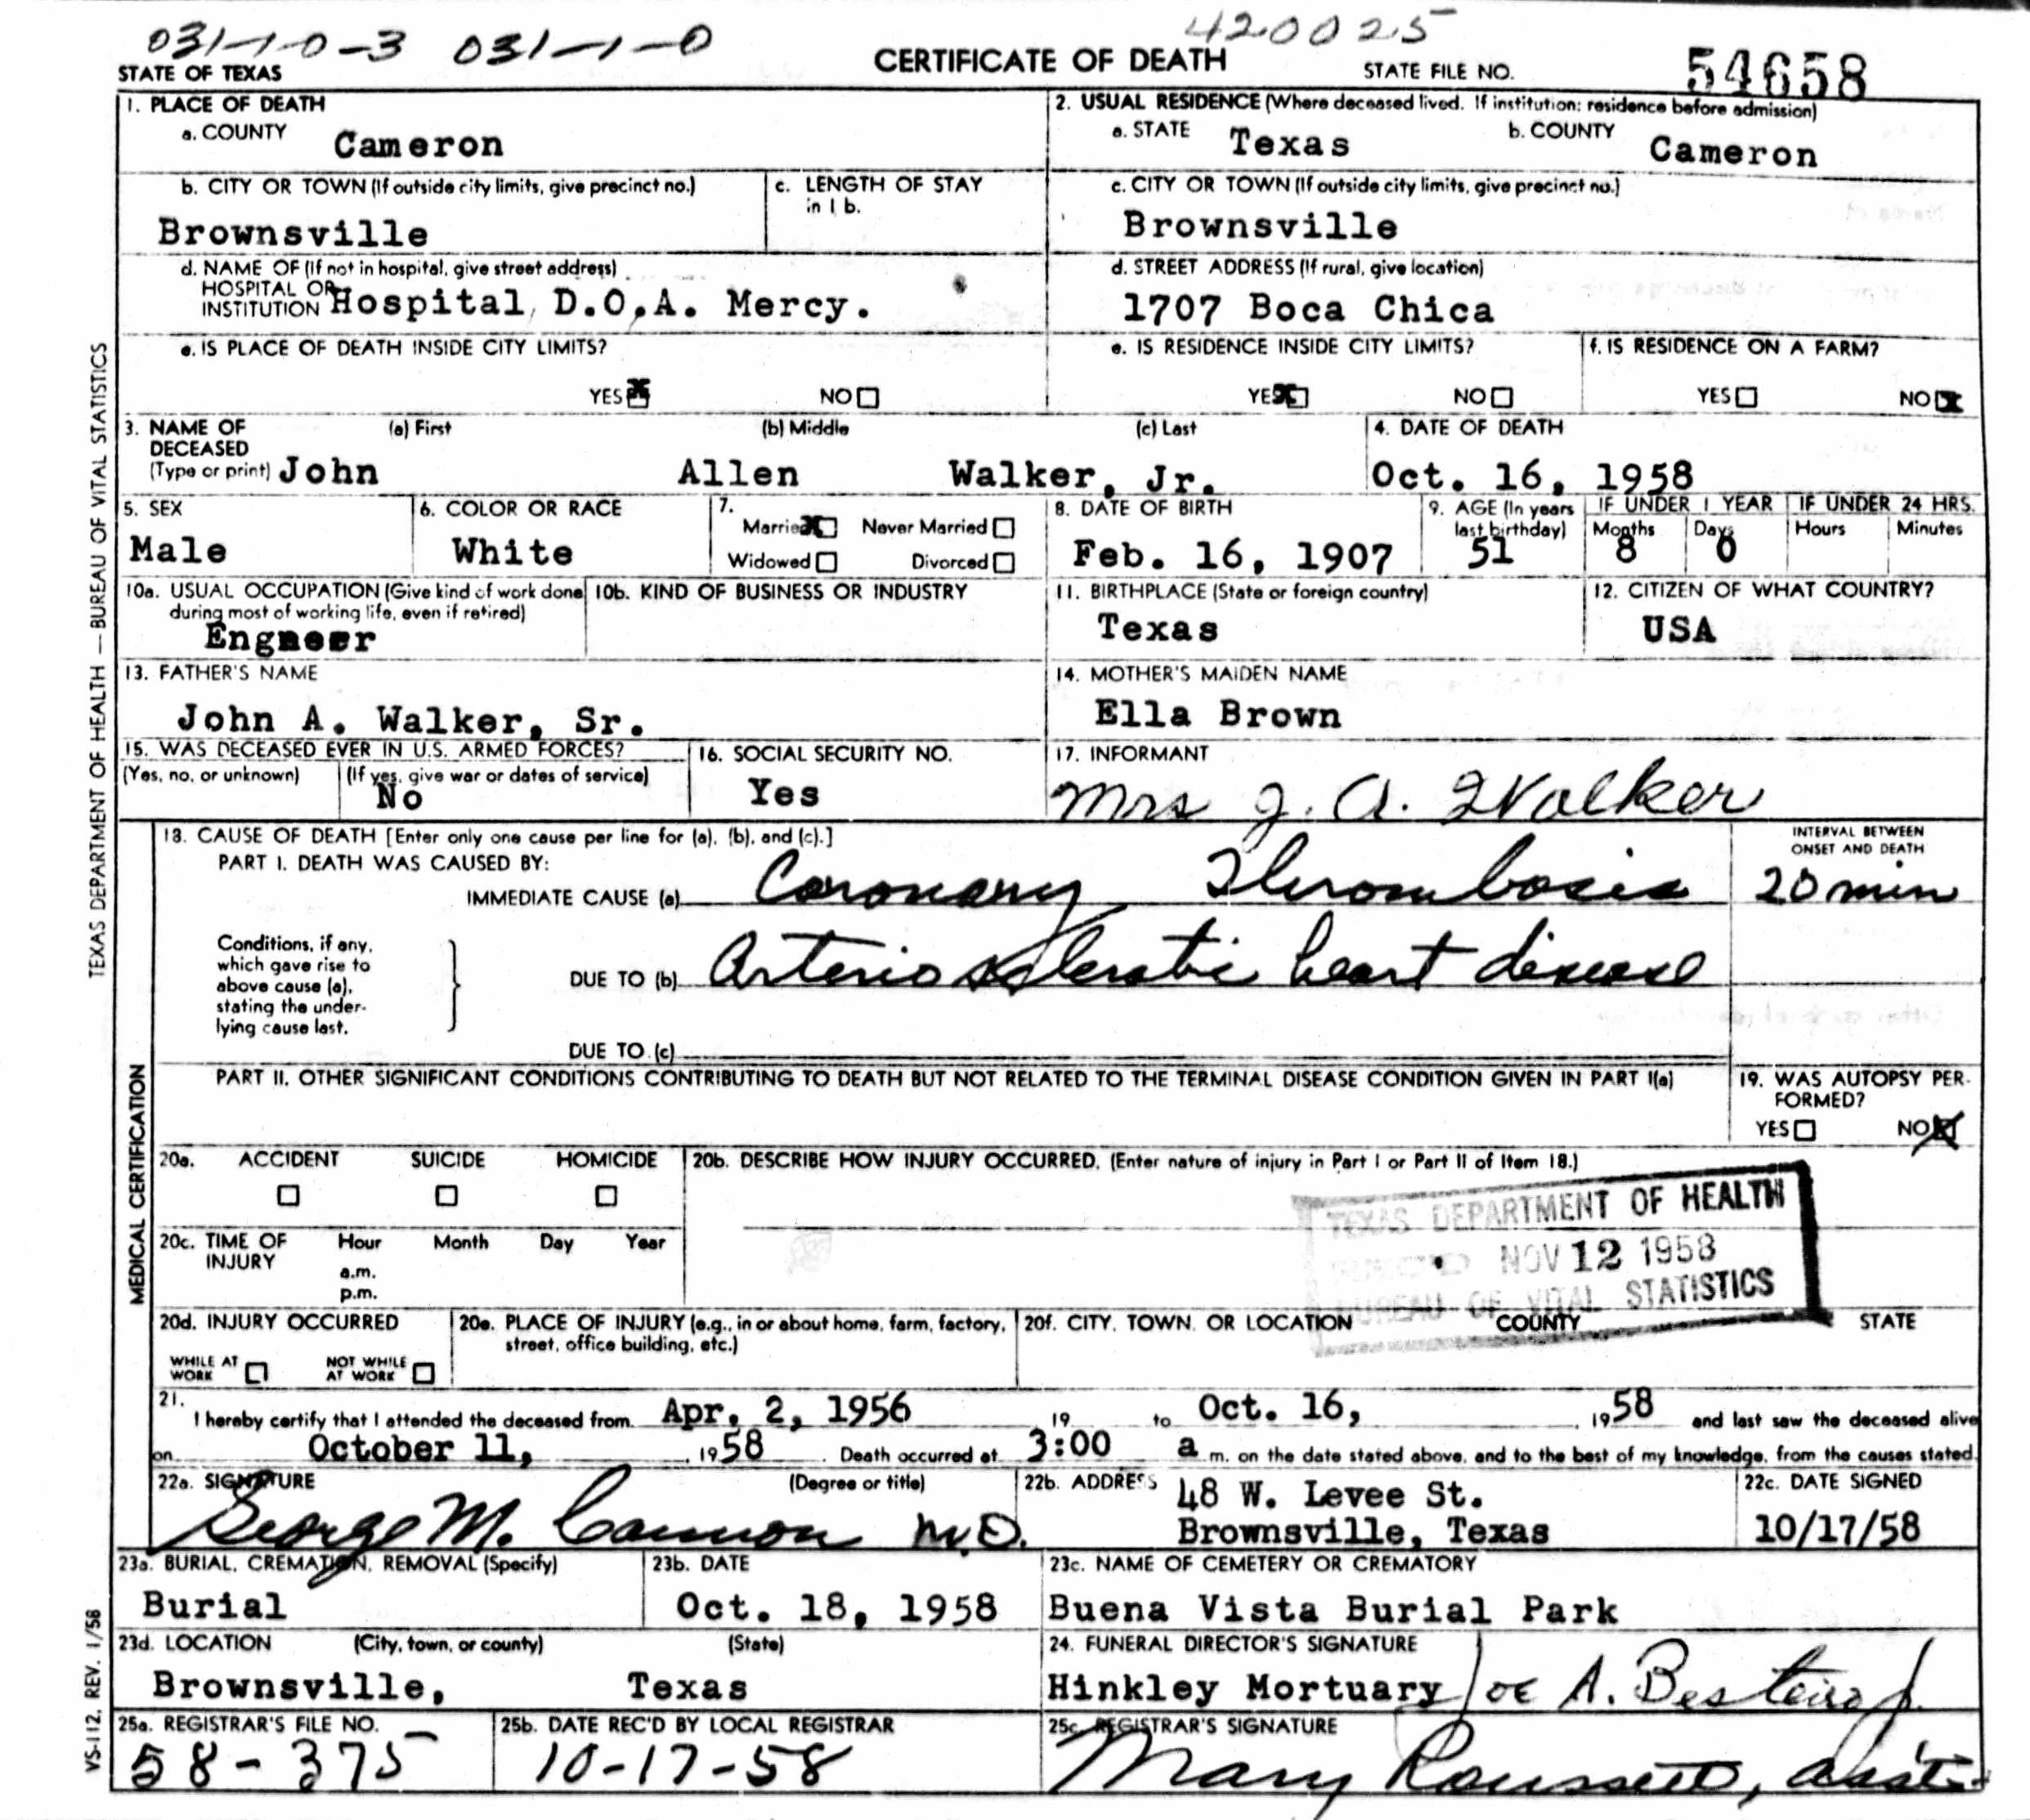 031-1-0-3 031-1-0 420025
STATE OF TEXAS CERTIFICATE OF DEATH STATE FILE NO. 54658
1. PLACE OF DEATH
a. COUNTY Cameron
2. USUAL RESIDENCE (Where deceased lived. If institution: residence before admission)
a. STATE Texas b. COUNTY Cameron
b. CITY OR TOWN (If outside city limits, give precinct no.)
Brownsville
c. LENGTH OF STAY
in 1 b.
c. CITY OR TOWN (If outside city limits, give precinct no.)
Brownsville
d. NAME OF (If not in hospital, give street address)
HOSPITAL OR
INSTITUTION Hospital, D.O.A. Mercy.
d. STREET ADDRESS (If rural, give location)
1707 Boca Chica
e. IS PLACE OF DEATH INSIDE CITY LIMITS?
YES NO
e. IS RESIDENCE INSIDE CITY LIMITS?
YES NO
f. IS RESIDENCE ON A FARM?
YES NO
3. NAME OF (a) First (b) Middle (c) Last
DECEASED
(Type or print) John Allen Walker, Jr.
4. DATE OF DEATH
Oct. 16, 1958
5. SEX
Male
6. COLOR OR RACE
White
7.
Married Never Married
Widowed Divorced
8. DATE OF BIRTH
Feb. 16, 1907
9. AGE (In years
last birthday)
51
IF UNDER 1 YEAR
Months Days
8 0
IF UNDER 24 HRS.
Hours Minutes
10a. USUAL OCCUPATION (Give kind of work done
during most of working life, even if retired)
Engneer
10b. KIND OF BUSINESS OR INDUSTRY
11. BIRTHPLACE (State or foreign country)
Texas
12. CITIZEN OF WHAT COUNTRY?
USA
13. FATHER'S NAME
John A. Walker, Sr.
14. MOTHER'S MAIDEN NAME
Ella Brown
15. WAS DECEASED EVER IN U.S. ARMED FORCES?
(Yes, no, or unknown) (If yes, give war or dates of service)
No
16. SOCIAL SECURITY NO.
Yes
17. INFORMANT
Mrs J. A. Walker
18. CAUSE OF DEATH [Enter only one cause per line for (a), (b), and (c).]
PART I. DEATH WAS CAUSED BY:
IMMEDIATE CAUSE (a) Coronary Thrombosis
INTERVAL BETWEEN
ONSET AND DEATH
20 min
Conditions, if any,
which gave rise to
above cause (a),
stating the under-
lying cause last.
DUE TO (b) Arterio sclerotic heart disease
DUE TO (c)
PART II. OTHER SIGNIFICANT CONDITIONS CONTRIBUTING TO DEATH BUT NOT RELATED TO THE TERMINAL DISEASE CONDITION GIVEN IN PART I(a)
19. WAS AUTOPSY PER-
FORMED?
YES NO
20a. ACCIDENT SUICIDE HOMICIDE
20b. DESCRIBE HOW INJURY OCCURRED. (Enter nature of injury in Part I or Part II of Item 18.)
TEXAS DEPARTMENT OF HEALTH
NOV 12 1958
BUREAU OF VITAL STATISTICS
20c. TIME OF Hour Month Day Year
INJURY
a.m.
p.m.
20d. INJURY OCCURRED
WHILE AT
WORK
NOT WHILE
AT WORK
20e. PLACE OF INJURY (e.g., in or about home, farm, factory,
street, office building, etc.)
20f. CITY, TOWN, OR LOCATION COUNTY STATE
21.
I hereby certify that I attended the deceased from Apr. 2, 1956 19 to Oct. 16, 1958 and last saw the deceased alive
on October 11, 1958. Death occurred at 3:00 a m. on the date stated above, and to the best of my knowledge, from the causes stated.
22a. SIGNATURE (Degree or title)
George M. Cannon M.D.
22b. ADDRESS 48 W. Levee St.
Brownsville, Texas
22c. DATE SIGNED
10/17/58
23a. BURIAL, CREMATION, REMOVAL (Specify)
Burial
23b. DATE
Oct. 18, 1958
23c. NAME OF CEMETERY OR CREMATORY
Buena Vista Burial Park
23d. LOCATION (City, town, or county) (State)
Brownsville, Texas
24. FUNERAL DIRECTOR'S SIGNATURE
Hinkley Mortuary Joe A. Besteiro Jr.
25a. REGISTRAR'S FILE NO.
58-375
25b. DATE REC'D BY LOCAL REGISTRAR
10-17-58
25c. REGISTRAR'S SIGNATURE
Mary Roussett, asst.
TEXAS DEPARTMENT OF HEALTH — BUREAU OF VITAL STATISTICS
MEDICAL CERTIFICATION
VS-112, REV. 1/58